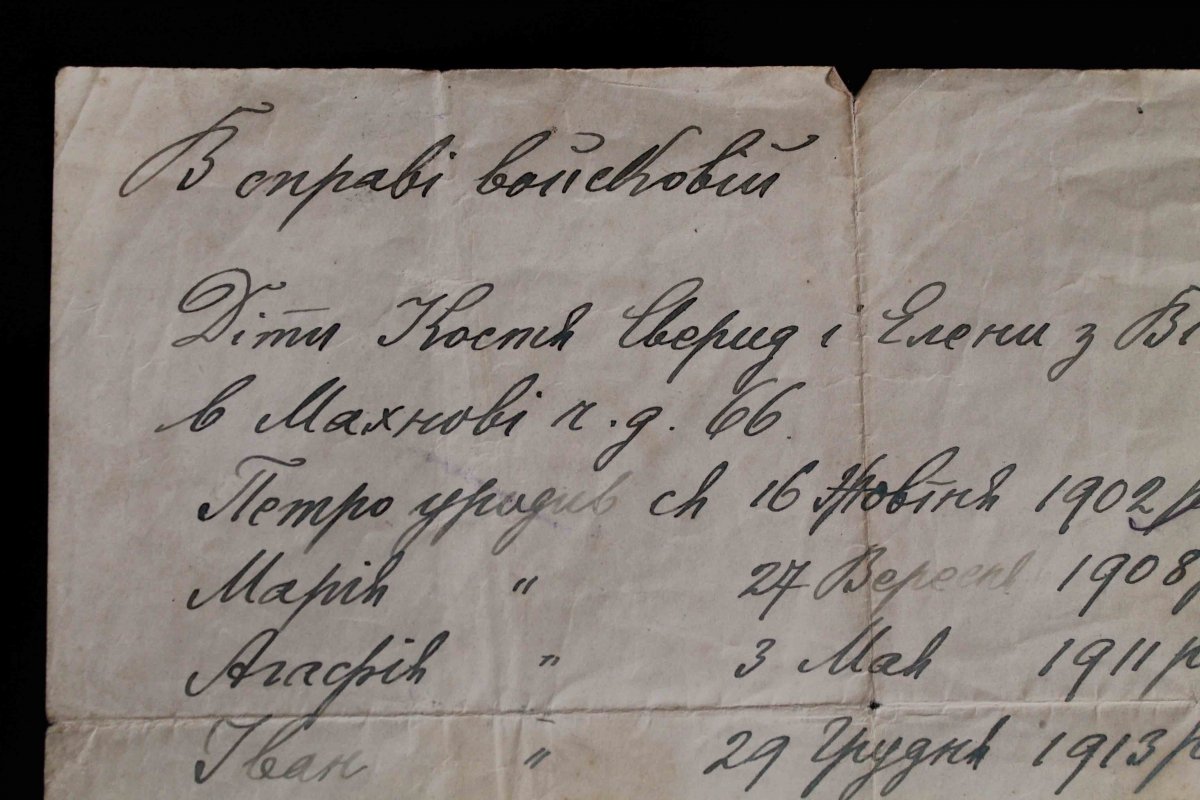 В справі войсковій
Діти Костя Сверид і Елени з
в Махнові ч. д. 66.
Петро уродив ся 16 Жовтня 1902 р
Марія " 27 Вересня 1908 р
Агафія " 3 Мая 1911 р
Іван " 29 Грудня 1913 р